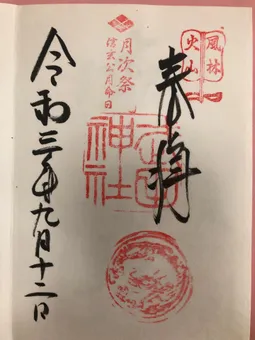 風林
火山
奉拝
月次祭
信玄公月命日
武田
神社
令和三年九月十二日